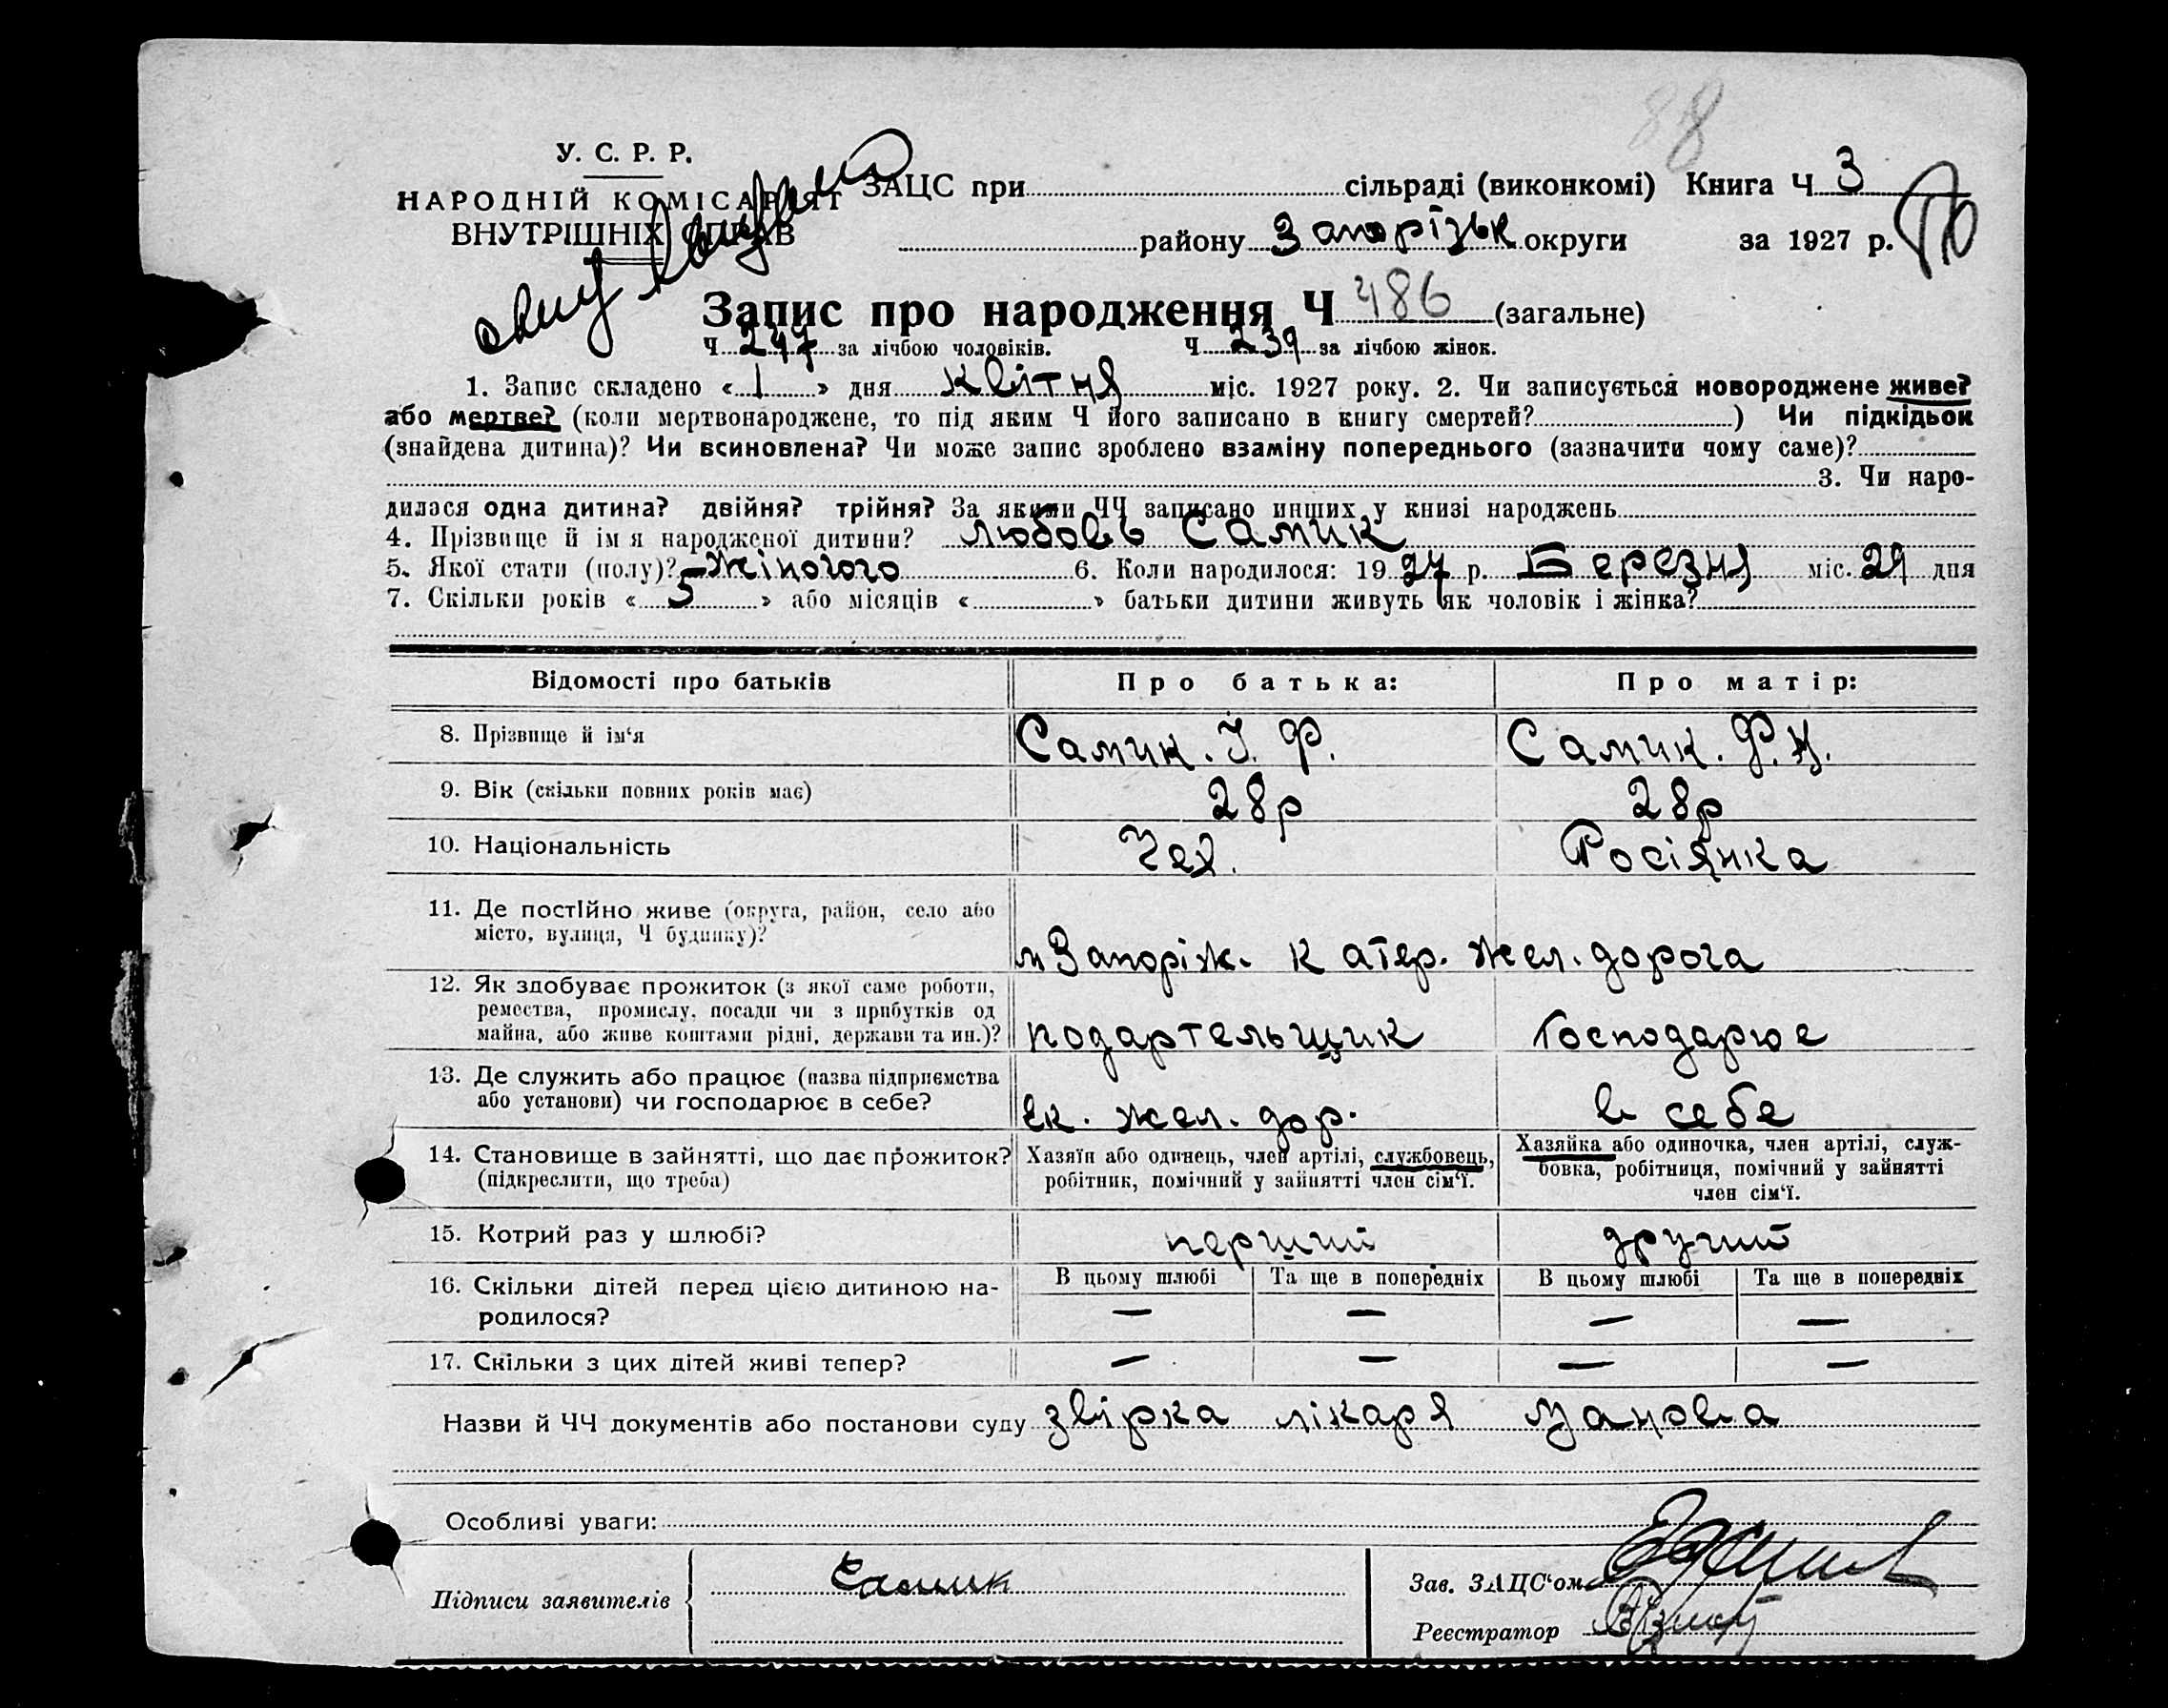 88
У. С. Р. Р.
НАРОДНІЙ КОМІСАРІЯТ
ВНУТРІШНІХ СПРАВ
ЗАЦС при сільраді (виконкомі) Книга Ч 3
району Запорізьк округи за 1927 р.
Запис про народження Ч 486 (загальне)
Ч 247 за лічбою чоловіків. Ч 239 за лічбою жінок.
1. Запис складено « 1 » дня квітня міс. 1927 року. 2. Чи записується новороджене живе?
або мертве? (коли мертвонароджене, то під яким Ч його записано в книгу смертей? ) Чи підкідьок
(знайдена дитина)? Чи всиновлена? Чи може запис зроблено взаміну попереднього (зазначити чому саме)?
3. Чи наро-
дилася одна дитина? двійня? трійня? За якими ЧЧ записано инших у книзі народжень
4. Прізвище й ім я народженої дитини? Любовь Самик
5. Якої стати (полу)? Жіногого 6. Коли народилося: 19 27 р. Березня міс. 29 дня
7. Скільки років « 5 » або місяців « » батьки дитини живуть як чоловік і жінка?
Відомості про батьків Про батька: Про матір:
8. Прізвище й ім‘я Самик. І. Ф. Самик. Ф. Н.
9. Вік (скільки повних років має) 28р 28р
10. Національність Чех. Росіянка
11. Де постійно живе (округа, район, село або
місто, вулиця, Ч будинку)?
м Запоріж. Катер. жел. дорога
12. Як здобуває прожиток (з якої саме роботи,
ремества, промислу, посади чи з прибутків од
майна, або живе коштами рідні, держави та ин.)? подартельщик Господарює
13. Де служить або працює (назва підприємства
або установи) чи господарює в себе? Ек. жел. дор. в себе
14. Становище в зайнятті, що дає прожиток?
(підкреслити, що треба)
Хазяїн або одинець, член артілі, службовець,
робітник, помічний у зайнятті член сім‘ї.
Хазяйка або одиночка, член артілі, служ-
бовка, робітниця, помічний у зайнятті
член сім‘ї.
15. Котрий раз у шлюбі? перший другий
16. Скільки дітей перед цією дитиною на-
родилося?
В цьому шлюбі Та ще в попередніх В цьому шлюбі Та ще в попередніх
— — — —
17. Скільки з цих дітей живі тепер? — — — —
Назви й ЧЧ документів або постанови суду звірка лікаря
Особливі уваги:
Підписи заявителів Самик
Зав. ЗАЦС‘ом
Реєстратор